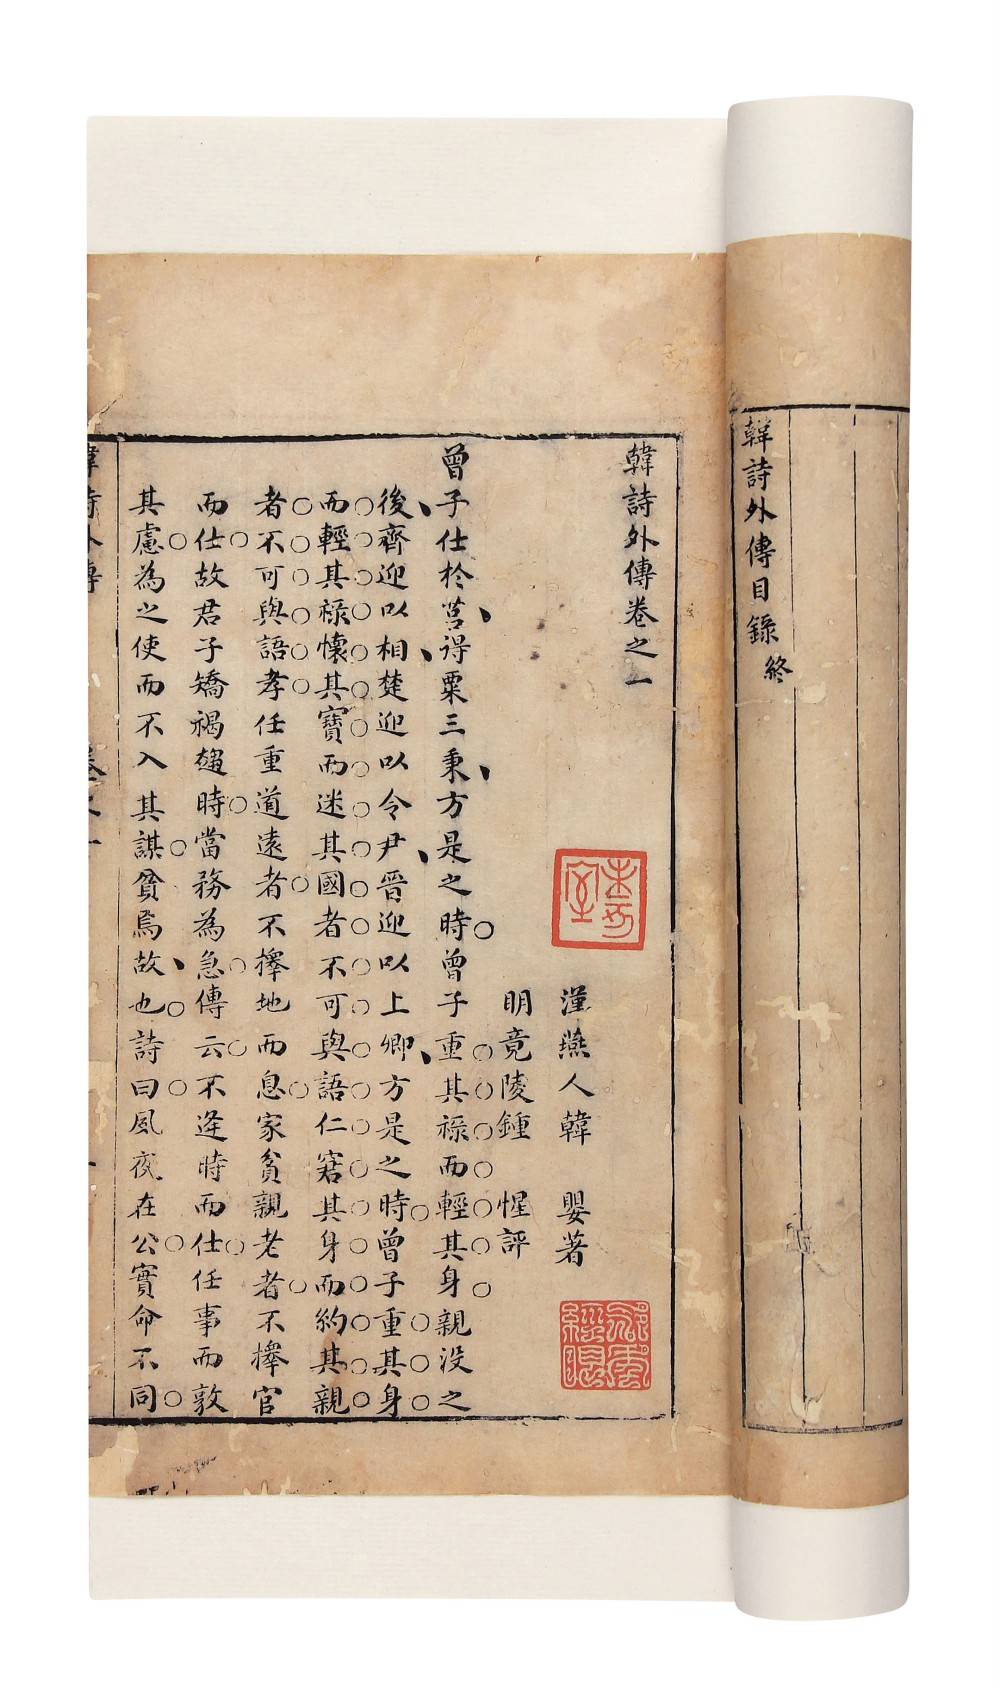 韓詩外傳目錄 終
韓詩外傳卷之一
漢燕人韓 嬰著
明竟陵鍾 惺評
曾子仕於莒得粟三秉方是之時曾子重其祿而輕其身親没之
後齊迎以相楚迎以令尹晉迎以上卿方是之時曾子重其身
而輕其祿懷其寶而迷其國者不可與語仁窘其身而約其親
者不可與語孝任重道遠者不擇地而息家貧親老者不擇官
而仕故君子矯褐趨時當務為急傳云不逢時而仕任事而敦
其慮為之使而不入其謀貧焉故也詩曰夙夜在公實命不同
韓詩外傳 卷之一